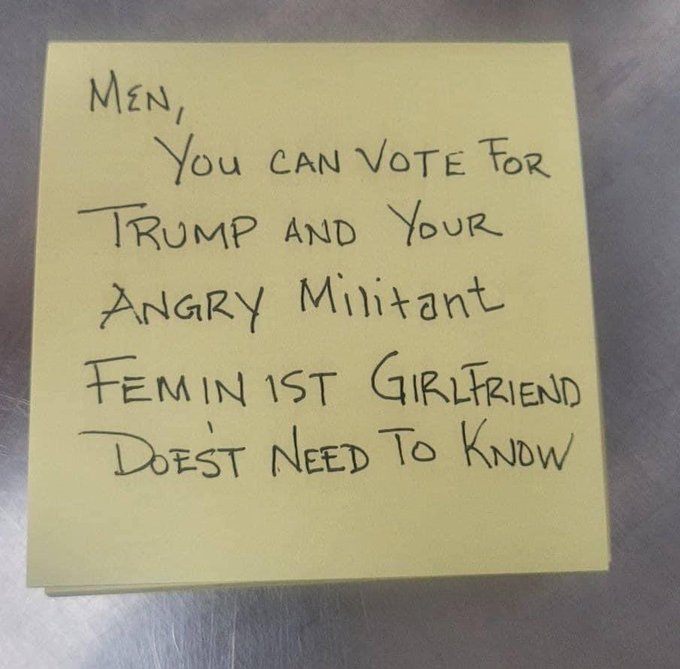 MEN,
You CAN VOTE FOR
TRUMP AND YOUR
ANGRY Militant
FEMINIST GIRLFRIEND
DOES'T NEED TO KNOW